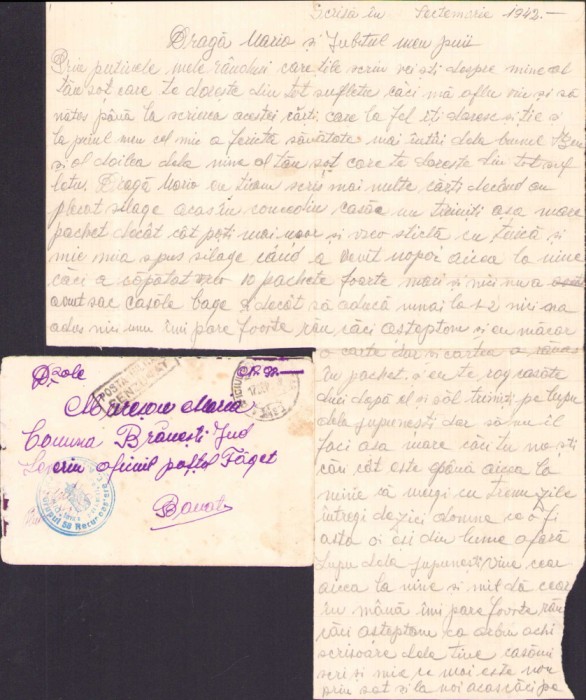 Scrisă în Sectemvrie 1942.-
Dragă Mario și Iubitul meu puii
Prin puținele mele rânduri care țile scriu vei ști despre mine al
tău soț care te dorește din tot sufletu căci mă aflu viu și să
nătos până la scrierea acestei cărți care la fel iți doresc și ție și
la puiul meu cel mic o fericită sănătate mai întâi dela bunul
și al doilea dela mine al tău soț care te dorește din tot suf
letu. Dragă Mario eu ticam scris mai multe cărți decând au
plecat silage acas în concediu casăm trimiți asa mare
pachet decât cât poți mai ușor și vreo sticlă cu țuică și
mie mia spus silage când a venit napoi aicea la mine
căci a căpătat vreo 10 pachete foarte mari și nici nu a
avut sac casăle bage decât să aducă numai la 1-2 nici na
adus nici unu îmi pare foarte rău căci așteptam și eu măcar
o carte dar și cartea a rămas
în pachet. și eu te rog
duci după el și săl trimiți pe lupu
dela jupunești dar să nu il
faci asa mare căci tu nu ști
cât este până aicea la
mine să mergi cu trenu zile
întregi de zici domne
asta oi eși din lume afară
Lupu dela jupunești vine
aicea la mine și mil dă
în mână îmi pare foarte rău
căci așteptam ca
scrisoare dela tine casămi
scri și mie ce mai este nou
prin sat și la noi acasă căci pe
Muresan Maria
Comuna Brănești Jud
Severin oficiul poștal Făget
Banat
CENZURAT